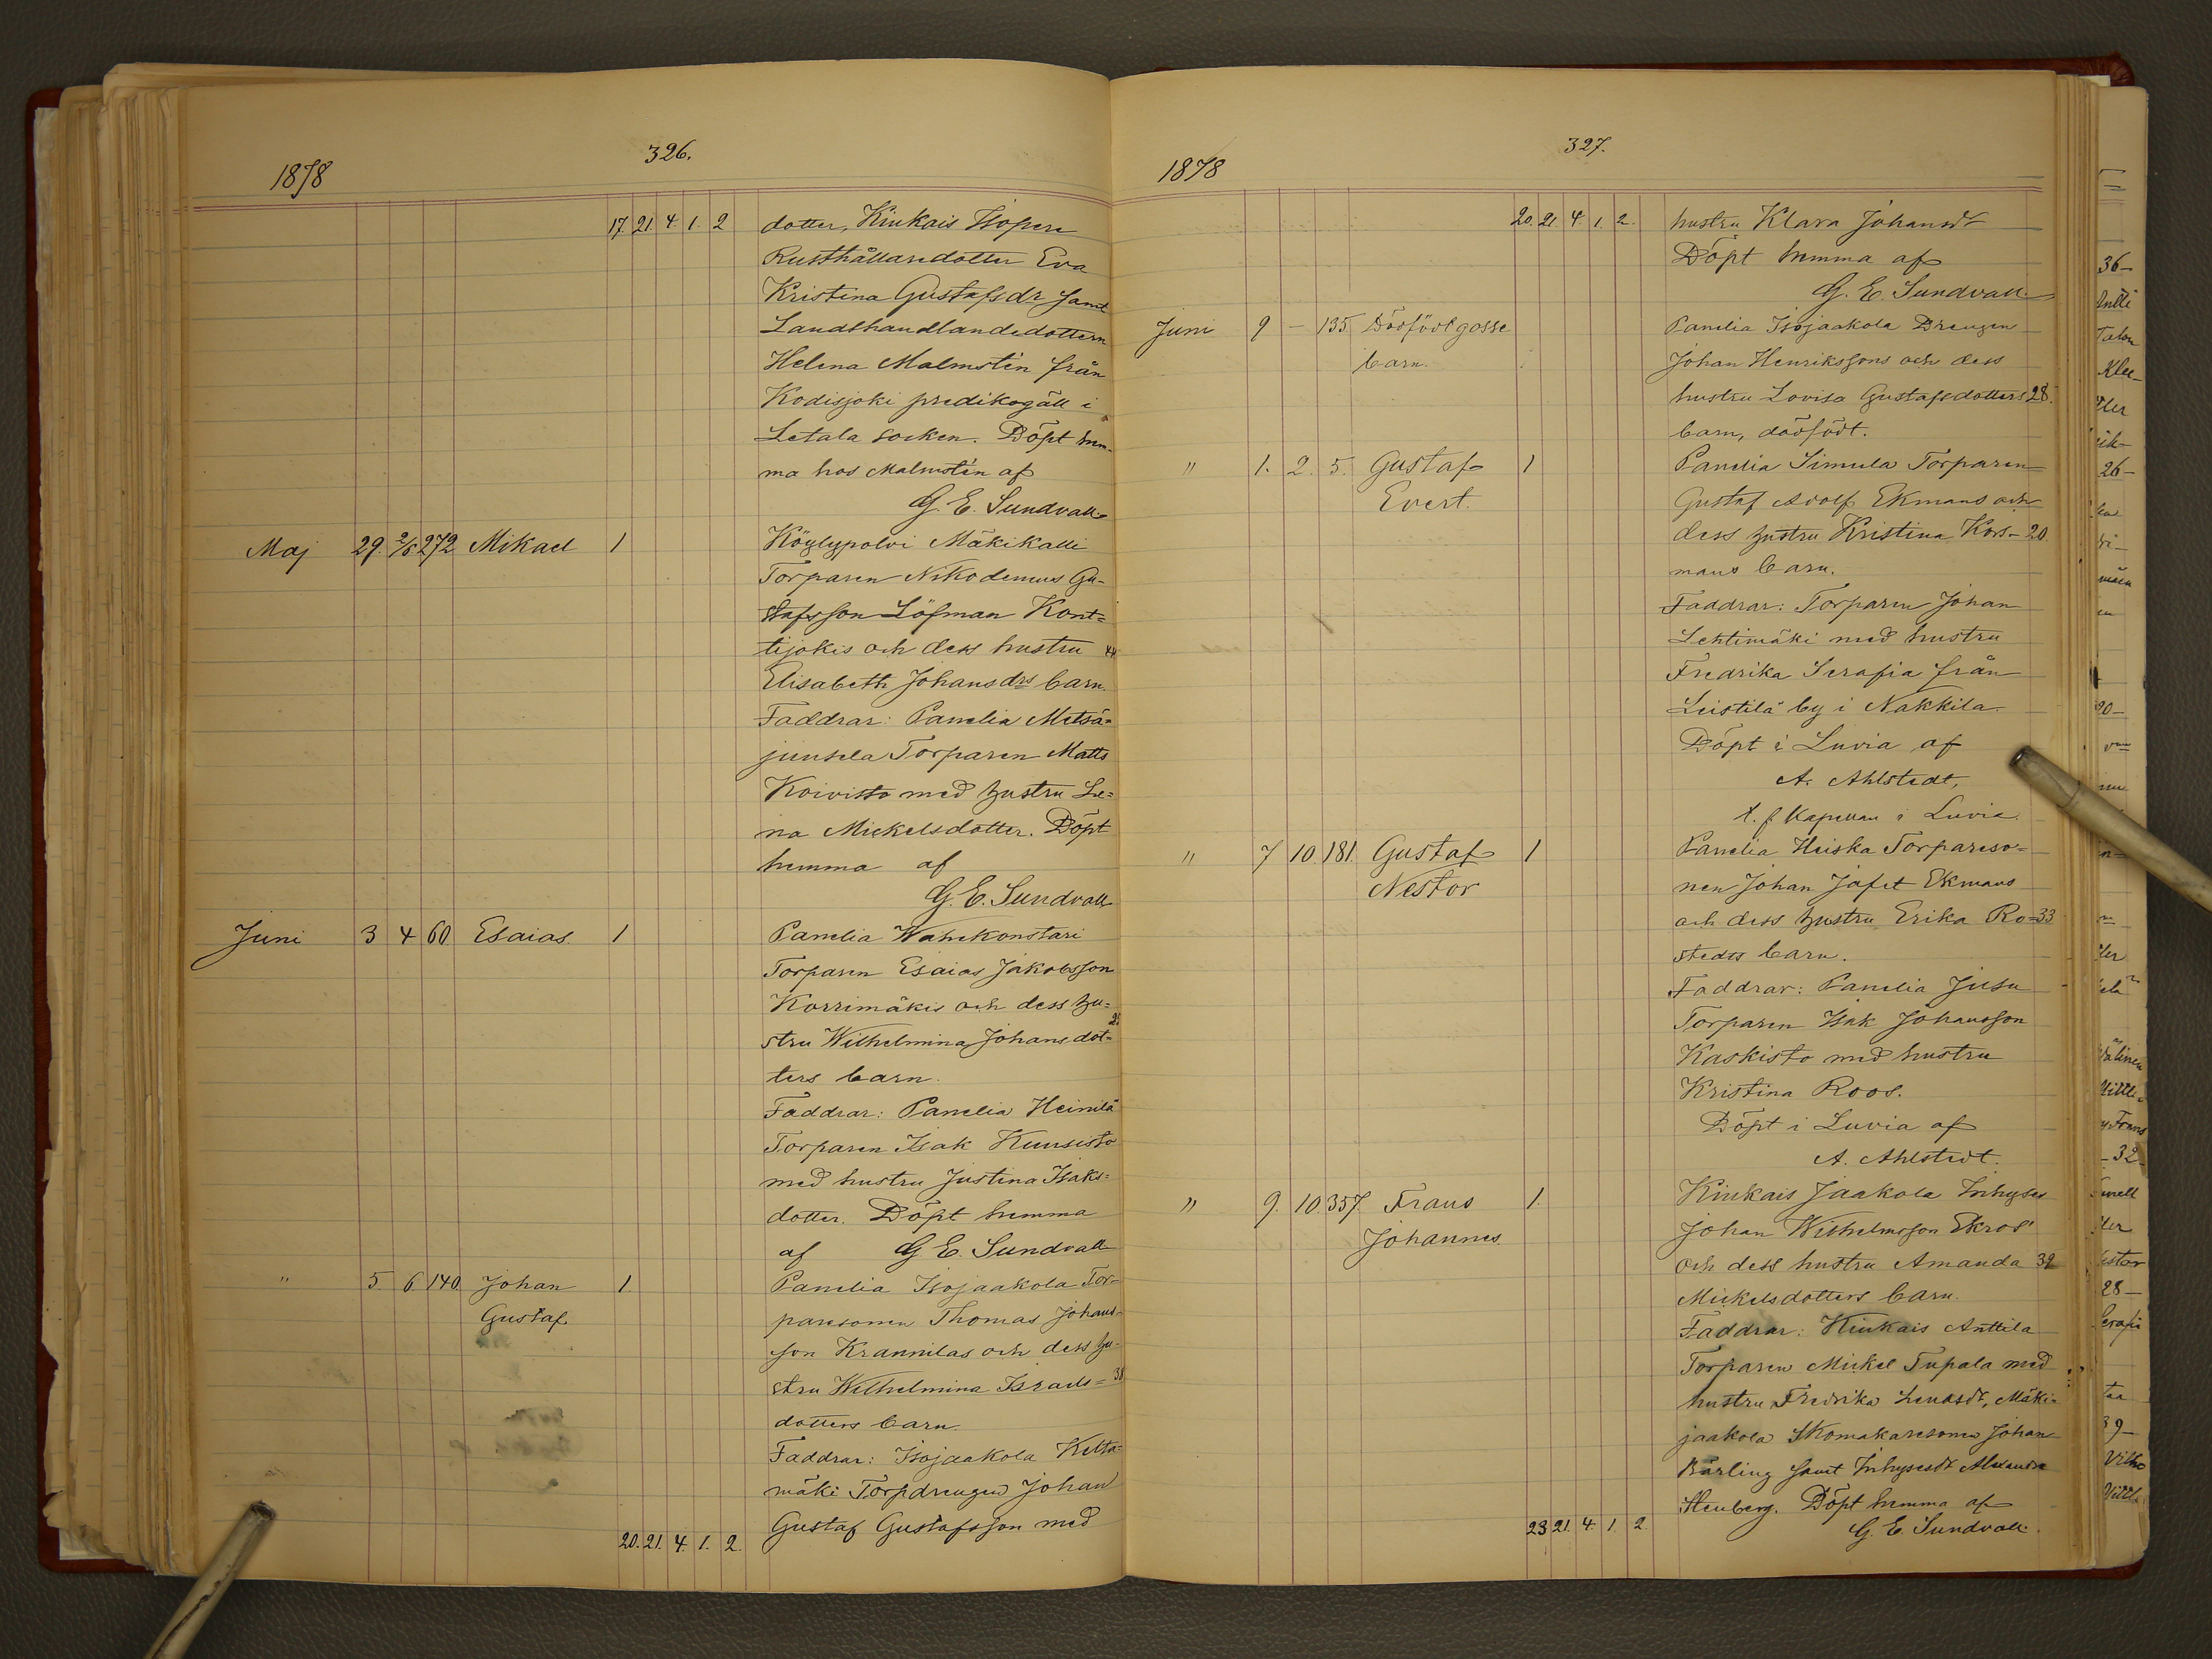 326.
1878
17 21. 4. 1. 2 dotter, Kiukais Isopere
Rusthållaredotter Eva
Kristina Gustafsdr samt
Landthandlandedottern
Helena Malmstén från
Kodisjoki predikogäll i
Letala socken. Döpt hem-
ma hos Malmstén af
G. E. Sundvall
Maj 29. 2/6 272 Mikael 1 Köylypolvi Mäkikalli
Torparen Nikodemus Gu-
stafsson Löfman Kont=
tijokis och dess hustru 44
Elisabeth Johansdrs barn.
Faddrar: Panelia Metsä-
juusela Torparen Matts
Koivisto med hustru Le=
na Mickelsdotter. Döpt
hemma af
G. E. Sundvall
Juni 3 4 60 Esaias 1 Panelia Wähäkonstari
Torparen Esaias Jakobsson
Korrimäkis och dess hu=
stru Wilhelmina Johansdot=
ters barn.
Faddrar: Panelia Heinilä
Torparen Isak Kuusisto
med hustru Justina Isaks=
dotter. Döpt hemma
af G. E. Sundvall
" 5. 6 140 Johan 1. Panelia Isojaakola Tor-
Gustaf paresonen Thomas Johans-
son Krannilas och dess hu-
stru Wilhelmina Israels= 38
dotters barn.
Faddrar: Isojaakola Ketta=
mäki Torpdrengen Johan
Gustaf Gustafsson med
20. 21. 4. 1. 2.
327.
1878
20. 21. 4. 1. 2. hustru Klara Johansdr
Döpt hemma af
G. E. Sundvall.
Juni 9 – 135. Dödfödt gosse Panelia Isojaakola Drengen
barn. Johan Henrikssons och dess
hustru Lovisa Gustafsdotters 28.
barn, dödfödt.
" 1. 2. 5. Gustaf 1 Panelia Simula Torparen
Evert. Gustaf Adolf Ekmans och
dess hustru Kristina Kors- 20.
mans barn.
Faddrar: Torparen Johan
Lehtimäki med hustru
Fredrika Serafia från
Leistilä by i Nakkila.
Döpt i Luvia af
A. Ahlstedt,
t. f. Kapellan i Luvia.
" 7 10 181. Gustaf 1 Panelia Heiska Torpareso=
Nestor nen Johan Jafet Ekmans
och dess hustru Erika Ro= 33
stedts barn.
Faddrar: Panelia Jusu
Torparen Isak Johansson
Kaskisto med hustru
Kristina Roos.
Döpt i Luvia af
A. Ahlstedt.
" 9. 10. 357. Frans 1. Kiukais Jaakola Inhyses
Johannes. Johan Wilhelmsson Ekros'
och dess hustru Amanda 32
Mickelsdotters barn.
Faddrar: Kiukais Anttila
Torparen Mickel Tupala med
hustru Fredrika Lenasdr, Mäki-
jaakola Skomakaresonen Johan
Bärling samt Inhysesdr Alexandra
Stenberg. Döpt hemma af
23 21. 4. 1. 2. G. E. Sundvall.